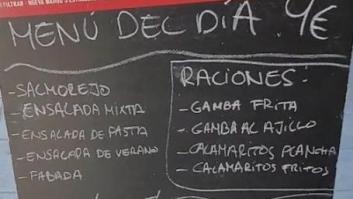 MENÚ DEL DÍA. 9€
-SALMOREJO
-ENSALADA MIXTA
-ENSALADA DE PASTA
-ENSALADA DE VERANO
-FABADA
RACIONES:
-GAMBA FRITA
-GAMBA AL AJILLO
-CALAMARITOS PLANCHA
-CALAMARITOS FRITOS